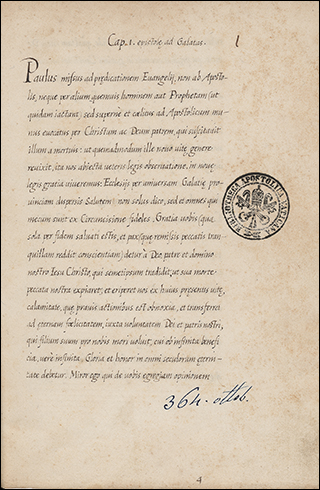 Cap. 1. epistolę ad Galatas. 1
Paulus missus ad prędicationem Euangelij, non ab Aposto-
lis, neque per alium quemuis hominem aut Prophetam (ut
quidam iactant) sed supernè et cælitus ad Apostolicum mu-
nus euocatus per Christum ac Deum patrem, qui suscitauit
illum a mortuis: ut quemadmodum ille nouo uitę genere
reuixit, ita nos abiecta ueteris legis obseruatione, in noue
legis gratia uiueremus: Ecclesijs per uniuersam Galatię pro-
uinciam dispersis Salutem; non solus dico, sed et omnes qui
mecum sunt ex Circuncisione fideles. Gratia uobis (qua
sola per fidem saluati estis, et pax (quę remissis peccatis tran
quillam reddit conscientiam) detur a Deo patre et domino
nostro Iesu Christo, qui semetipsum tradidit, ut sua morte
peccata nostra expiaret; et eriperet nos ex huius presentis uitę
calamitate, quę prauis actionibus est obnoxia, et transferret
ad ęternam fœlicitatem, iuxta uoluntatem Dei et patris nostri,
qui filium suum pro nobis mori uoluit; cui ob infinita benefi
cia, uerè infinita, Gloria et honor in omni seculorum ętern-
itate debetur. Miror ego qui de uobis egregiam opinionem
BIBLIOTHECA APOSTOLICA VATICANA
364. ottob.
4